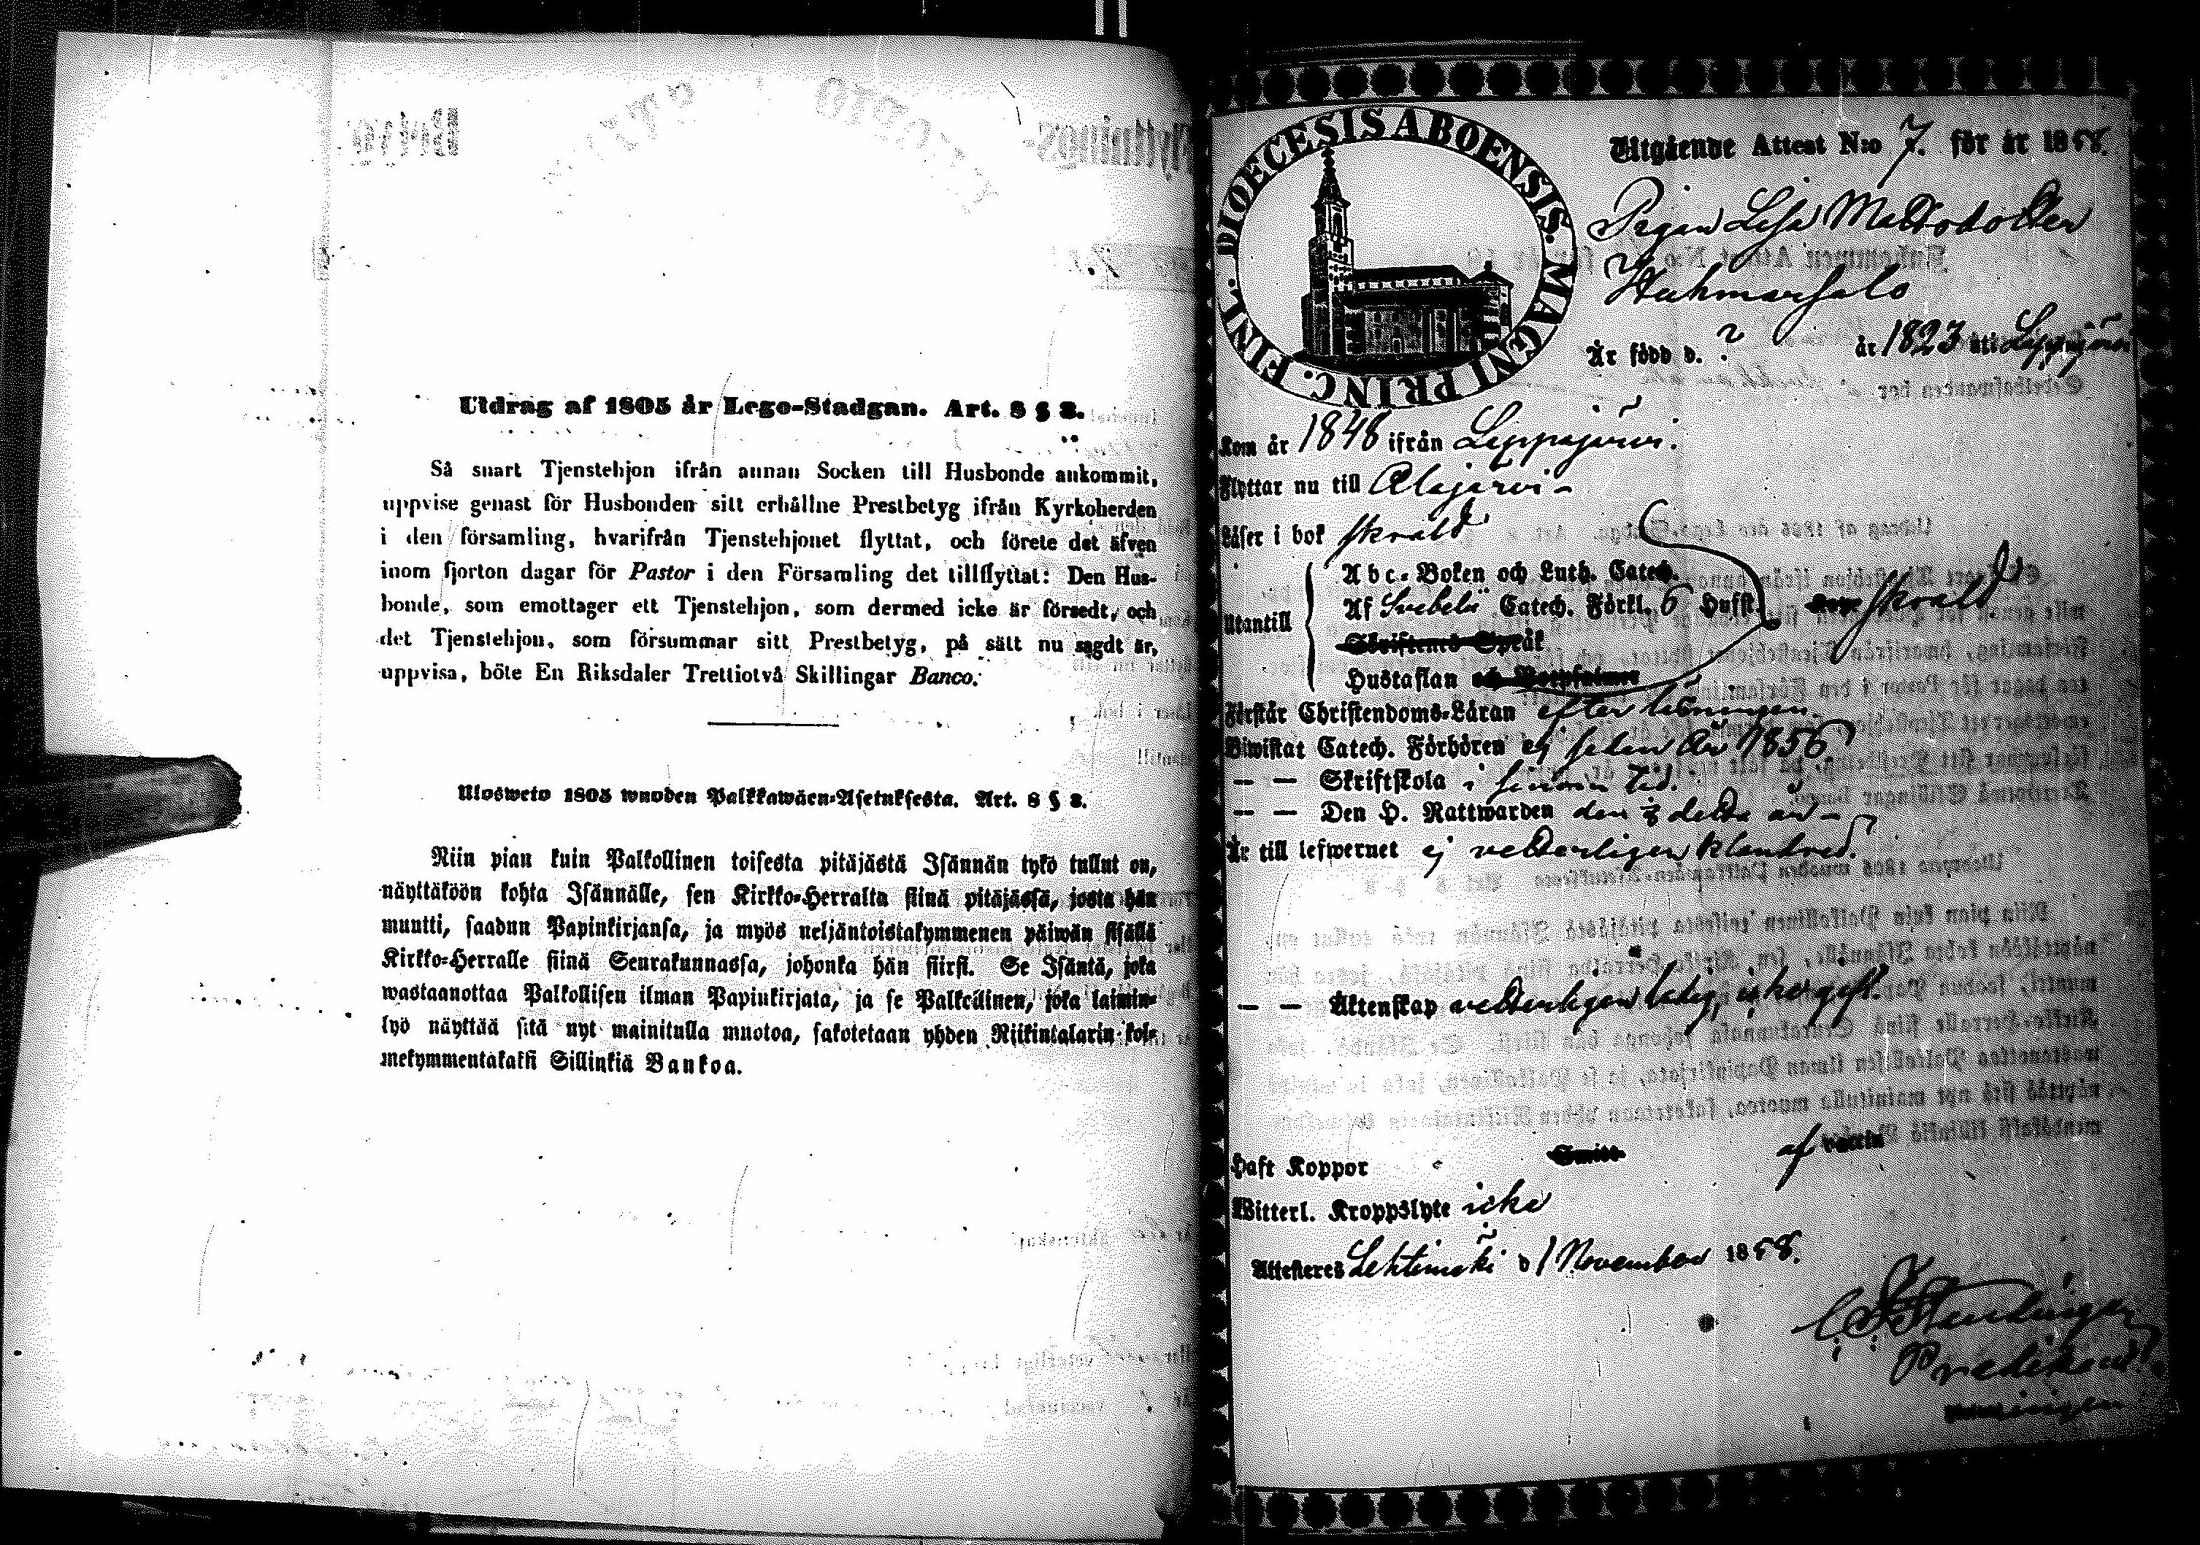 Utdrag af 1805 år Lego-Stadgan. Art. 8 § 2.
Så snart Tjenstehjon ifrån annan Socken till Husbonde ankommit,
uppvise genast för Husbonden sitt erhållne Prestbetyg ifrån Kyrkoherden
i den församling, hvarifrån Tjenstehjonet flyttat, och förete det äfven
inom fjorton dagar för Pastor i den Församling det tillflyttat: Den Hus-
bonde, som emottager ett Tjenstehjon, som dermed icke är försedt, och
det Tjenstehjon, som försummar sitt Prestbetyg, på sätt nu sagdt är,
uppvisa, böte En Riksdaler Trettiotvå Skillingar Banco.
Ulosweto 1805 wuoden Palkkawäen-Asetuksesta. Art. 8 § 2.
Niin pian kuin Palkollinen toisesta pitäjästä Isännän tykö tullut on,
näyttäköön kohta Isännälle, sen Kirkko-Herralta siinä pitäjässä, josta hän
muutti, saadun Papinkirjansa, ja myös neljäntoistakymmenen päiwän sisällä
Kirkko-Herralle siinä Seurakunnassa, johonka hän siirsi. Se Isäntä, joka
wastaanottaa Palkollisen ilman Papinkirjata, ja se Palkollinen, joka laimin-
lyö näyttää sitä nyt mainitulla muotoa, sakotetaan yhden Riikintalarin kol-
mekymmentäkaksi Sillinkiä Bankoa.
DIOECESIS ABOENSIS. MAGNI PRINC. FINL.
Utgående Attest N:o 7. för år 1858.
Pigan Lisa Mattsdotter
Huhmarsalo
Är född d. ? år 1823 uti Lappajärvi
Kom år 1848 ifrån Lappajärvi.
Flyttar nu till Alajärvi
Läser i bok försvarl.
Utantill
Abc-Boken och Luth. Catech.
Af Svebelii Catech. Förkl. 6 Hufst.
Skriftenes Språk
Hustaflan
Förstår Christendoms-Läran efter läsningen.
Biwistat Catech. Förhören ej sedan år 1856
— — Skriftskola i sinom tid.
— — Den H. Nattwarden den detta år
Är till lefwernet ej vetterligen klandrad.
— — Äktenskap vetterligen ledig, icke gift.
Haft Koppor
af
Witterl. Kroppslyte icke
Attesteres Lehtimäki d 1 November 1858.